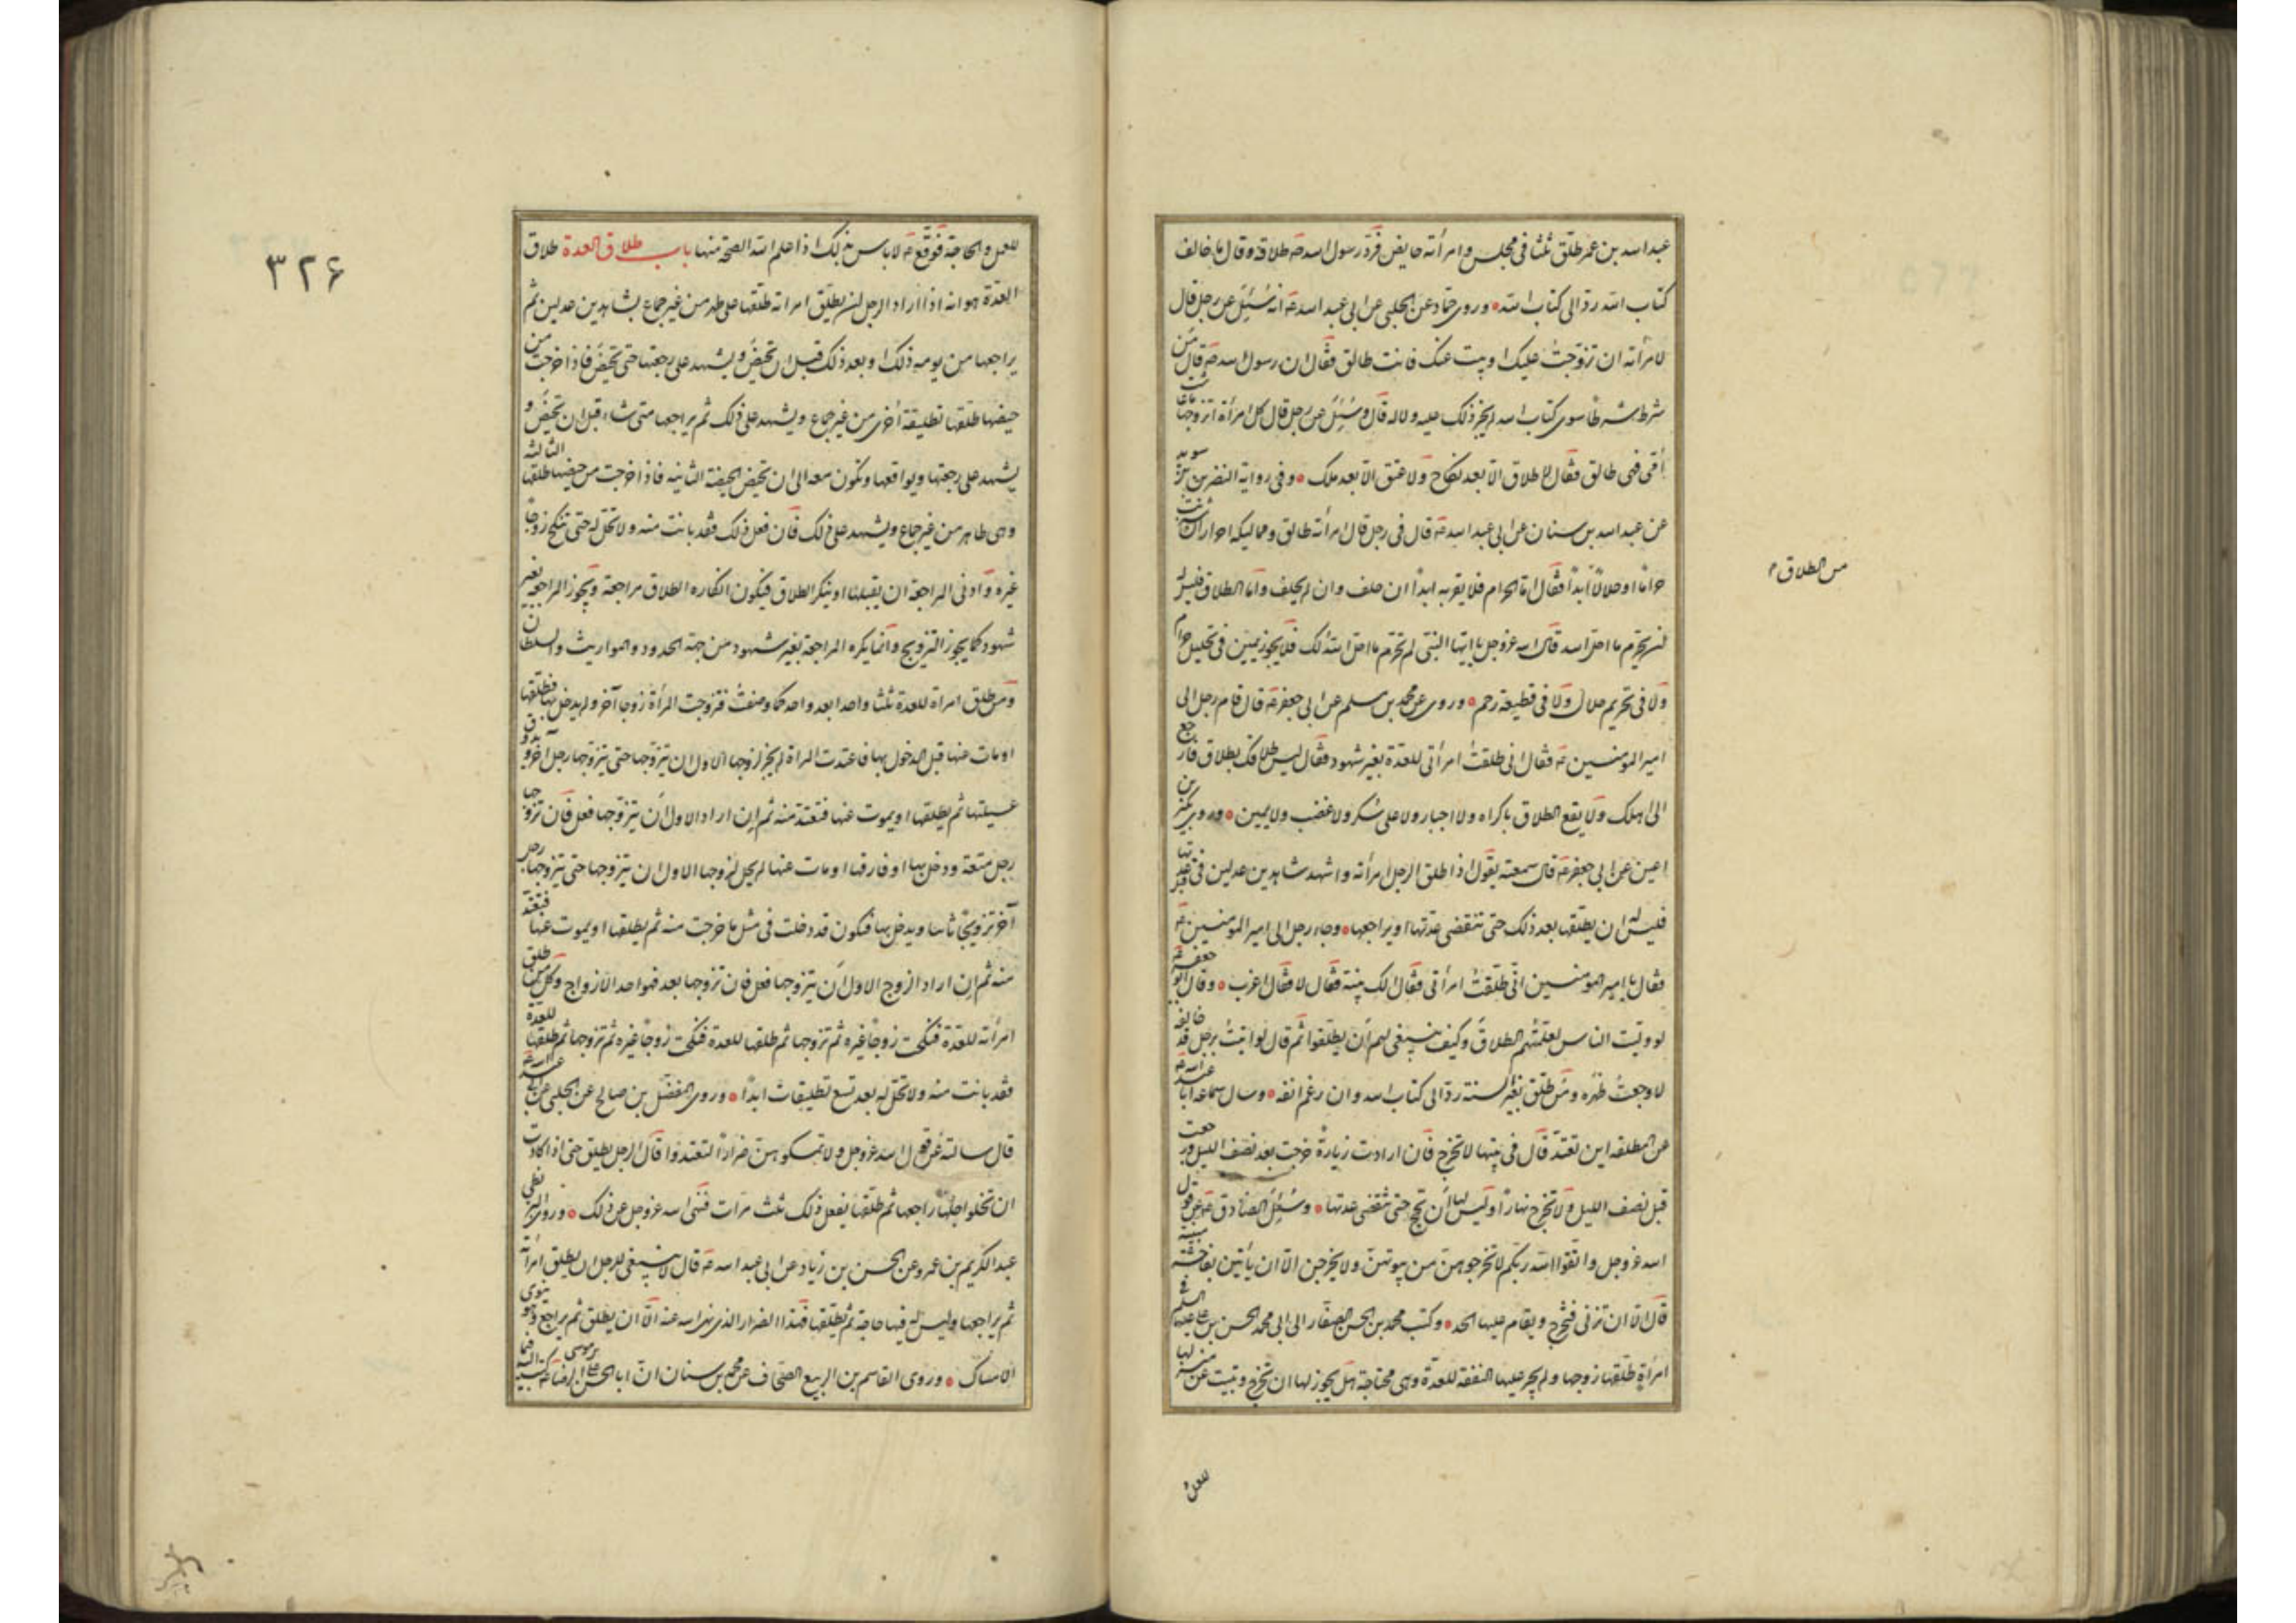 عبد اسد بن عمر طلّق ثلثا فی مجلس وامرأته حایض فَردّ رسول اسدصَه طلاقه وقال ما خالف
کتاب الله ردّ الی کتاب الله وروی حمّاد عن الحلبی عن ابی عبد اسدعَه انه سُئِلَ عن رجل قال
لامرأته ان تزوّجتُ علیک او بتّ عنک فانت طالق فقال ان رسول اسدصَه قال مَن
شرط شرطًا سوی کتاب اسد لم یجز ذلک علیه ولا له قال وسُئِلَ عن رجل قال کل امرأة اتزوجها ما عاشت
اُمّی فهی طالق فقال لا طلاق الّا بعد نکاح ولا عتق الّا بعد ملک وفی روایة النضر بن سوید
عن عبد اسد بن سنان عن ابی عبد اسدعَه قال فی رجل قال امرأته طالق وممالیکه احرار ان شربت
حرامًا او حلالًا ابدًا فقال امّا الحرام فلا یقربه ابدًا ان حلف وان لم یحلف وامّا الطلا فلیس له
ان یحرّم ما احلّ اسد قال اسد عزوجل یا ایها النبّی لم تحرّم ما احلّ الله لک فلا یجوز یمین فی تحلیل حرام
ولا فی تحریم حلال ولا فی قطیعة رحم وروی عن محمد بن مسلم عن ابی جعفرعَه قال قام رجل الی
امیر المومنین عَه فقال انی طلقتُ امرأتی للعدّة بغیر شهود فقال لیس طلاقک بطلاق فارجع
الی اهلک ولا یقع الطلاق باکراه ولا اجبار ولا علی سُکر ولا غضب ولا یمین وروی بکیر بن
اعین عن ابی جعفرعَه قال سمعته یقول اذا طلق الرجل امرأته واشهد شاهدین عدلین فی قبل عدتها
فلیس له ان یطلّقها بعد ذلک حتی تنقضی عدّتها او یراجعها وجاء رجل الی امیر المومنین عَه
فقال یا امیر المومنین انّی طلّقتُ امرأتی فقال الک بیّنة فقال لا فقال اعزب وقال ابو جعفرعَه
لو ولیّت الناس لعلّمتُهم الطلاق وکیف ینبغی لهم اَن یطلّقوا ثم قال لو اتیتُ برجل قد خالفه
لاوجعتُ ظهره ومَن طلّق بغیر السنة ردّ الی کتاب اسد وان رغم انفه وسال سماعه ابا عبد اسدعَه
عن المطلقه این تعتدّ قال فی بیتها لا تخرج فان ارادت زیارةً خرجت بعد نصف اللیل ورجعت
قبل نصف اللیل ولا تخرج نهارًا ولیس لها اَن تحج حتی تنقضی عدتها وسُئِلَ الصّادق عَه عن قول
اسد عزوجل واتّقوا الله ربّکم لا تخرجوهنّ من بیوتهنّ ولا یخرجن الّا ان یأتین بفاحشة مبینة
قال الّا ان تزنی فتخرج ویقام علیها الحد وکتب محمد بن الحسن الصفّار الی ابی محمد الحسن بن علی علیهما السلم فی
امرأةٍ طلّقها زوجها ولم یجر علیها النفقة للعدّة وهی محتاجة هل یجوز لها ان تخرج وتبیت عن منزلها
من الطلاق م
للعمل
٣٢۶
للعمل والحاجة فَوقَّع عَه لا باس بذلک اذا علم الله الصحّة منها باب طلاق العدة طلاق
العدّة هو انه اذا اراد الرجل ان یطلّق امراته طلّقها علی طهر من غیر جماع بشاهدین عدلین ثم
یراجعها من یومه ذلک او بعد ذلک قبل ان تحیض ویشهد علی رجعتها حتی تحیض فاذا خرجت من
حیضها طلّقها تطلیقة اُخری من غیر جماع ویشهد علی ذلک ثم یراجعها متی شاء قبل ان تحیض و
یشهد علی رجعتها ویواقعها وتکون معه الی ان تحیض الحیضة الثانیه فاذا خرجت من حیضها طلقها الثالثة
وهی طاهر من غیر جماع ویشهد علی ذلک فان فعل ذلک فقد بانت منه ولا تحلّ له حتی تنکح زوجًا
غیره وادنی المراجعة ان یقبلها او ینکر الطلاق فیکون انکاره الطلاق مراجعة ویجوز المراجعة بغیر
شهود کما یجوز التزویج وانّما یکره المراجعة بغیر شهود من جهة الحدود والمواریث والسلطان
ومن طلق امراة للعدة ثلثا واحدا بعد واحد کما وصفتُ فتزوجت المرأة زوجا آخر ولم یدخل بها فطلقها
او مات عنها قبل الدخول بها فاعتدت المراة لم یجز لزوجها الاول ان یتزوّجها حتی یتزوّجها رجل آخر ویذوق
عسیلتها ثم یطلقها او یموت عنها فتعتدّ منه ثم اِن اراد الاول اَن یتزوّجها فعل فان تزوّجها
رجل متعة ودخل بها او فارقها او مات عنها لم یحل لزوجها الاول ان یتزوجها حتی یتزوجها رجل
آخر تزویجًا ثابتا ویدخل بها فیکون قد دخلت فی مثل ما خرجت منه ثم یطلقها او یموت عنها فتعتد
منه ثم اِن اراد الزوج الاول اَن یتزوجها فعل فان تزوجها بعد فهو احد الازواج وکل من طلق
امرأته للعدّة فنکحت زوجًا غیره ثم تزوجها ثم طلقها للعدة فنکحت زوجًا غیره ثم تزوجها ثم طلقها للعدة
فقد بانت منه ولا تحلّ له بعد تسع تطلیقات ابدًا وروی المفضّل بن صالح عن الحلبی عن ابی عبد اسدعَه
قال سالته عن قول اسد عزوجل ولا تمسکوهنّ ضرارًا لتعتدوا قال الرجل یطلق حتی اذا کادت
ان تخلو اجلُها راجعها ثم طلّقها یفعل ذلک ثلث مرّات فنهی اسد عزوجل عن ذلک وروی البزنطی
عبد الکریم بن عمرو عن الحسن بن زیاد عن ابی عبد اسدعَه قال لا ینبغی للرجل ان یطلق امرأته
ثم یراجعها ولیس له فیها حاجة ثم یطلّقها فهذا الضرار الذی نهی اسد عنه الّا ان یطلق ثم یراجع وهو ینوی
الامساک وروی القاسم بن الربیع الصّحاف عن محمد بن سنان انّ ابا الحسن علی بن موسی الرضاعَه کتب الیه فیما